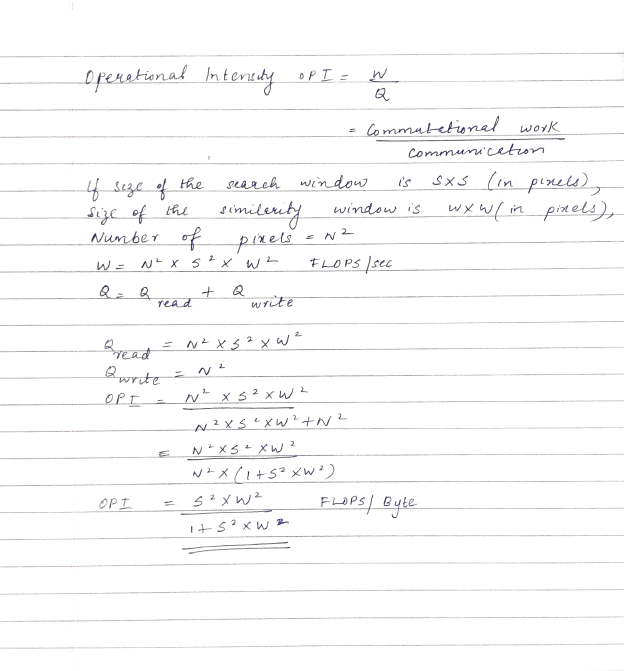 Operational Intensity OPI = W
Q
= Commutational work
Communication
If size of the search window is SXS (in pixels),
size of the similarity window is WXW (in pixels),
Number of pixels = N²
W = N² X S² X W² FLOPS/sec
Q = Q read + Q write
Q read = N² X S² X W²
Q write = N²
OPI = N² X S² X W²
N² X S² X W² + N²
= N² X S² X W²
N² X (1+S² X W²)
OPI = S² X W² FLOPS/Byte
1+ S² X W²